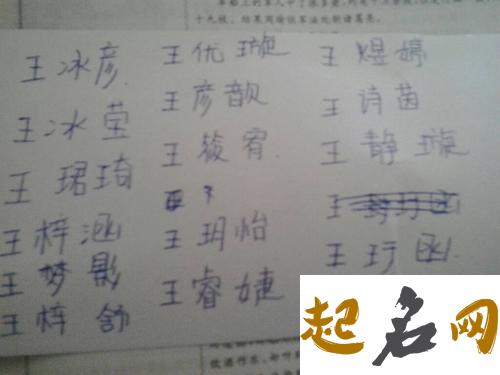 王冰彦.
王冰莹
王珺琦
王梓涵
王梦影
王梓舒
王优璇
王彦歆
王筱宥.
王玥怡
王睿婕
王煜婷
王诗茵
王静璇
王玗函.
起名网